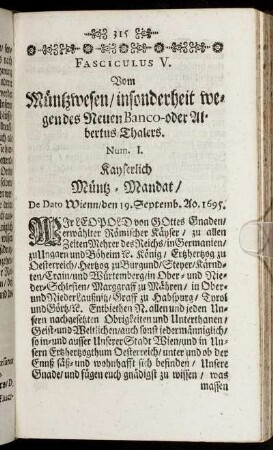 315
FASCICULUS V.
Vom
Müntzwesen/insonderheit we-
gen des Neuen Banco-oder Al-
bertus Thalers.
Num. I.
Kayserlich
Müntz - Mandat/
De Dato Wienn/den 19. Septemb. Ao. 1695.
WIr LEOPOLD von GOttes Gnaden/
erwählter Römischer Käyser/ zu allen
Zeiten Mehrer des Reichs/in Germanien/
zu Ungarn und Böheim ꝛc. König/ Ertzhertzog zu
Oesterreich/Hertzog zu Burgund/Steyer/Kärnd-
ten/Crain/und Würtenberg/in Ober- und Nie-
der-Schlesien/ Marggraff zu Mähren/ in Ober-
und Nieder Laußnitz/Graff zu Habspurg/ Tyrol
und Görtz/ꝛc. Entbiethen N. allen und jeden Un-
sern nachgesetzten Obrigkeiten und Unterthanen/
Geist-und Weltlichen/auch sonst jedermänniglich/
so in-und ausser Unserer Stadt Wien/und in Un-
sern Ertzhertzogthum Oesterreich/unter und ob der
Ennß säß-und wohnhafft sich befinden/ Unsere
Gnade/und fügen euch gnädigst zu wissen/ was
massen